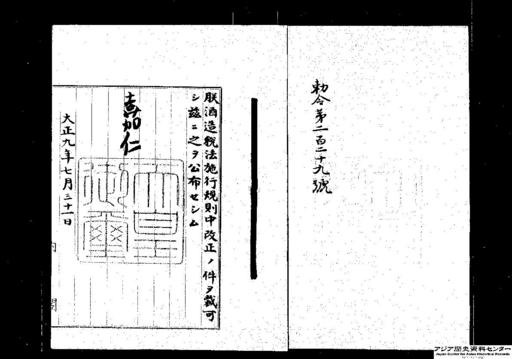 勅令第二百二十九號
朕酒造税法施行規則中改正ノ件ヲ裁可
シ茲ニ之ヲ公布セシム
嘉仁
大正九年七月三十一日
内閣
アジア歴史資料センター
Japan Center for Asian Historical Records